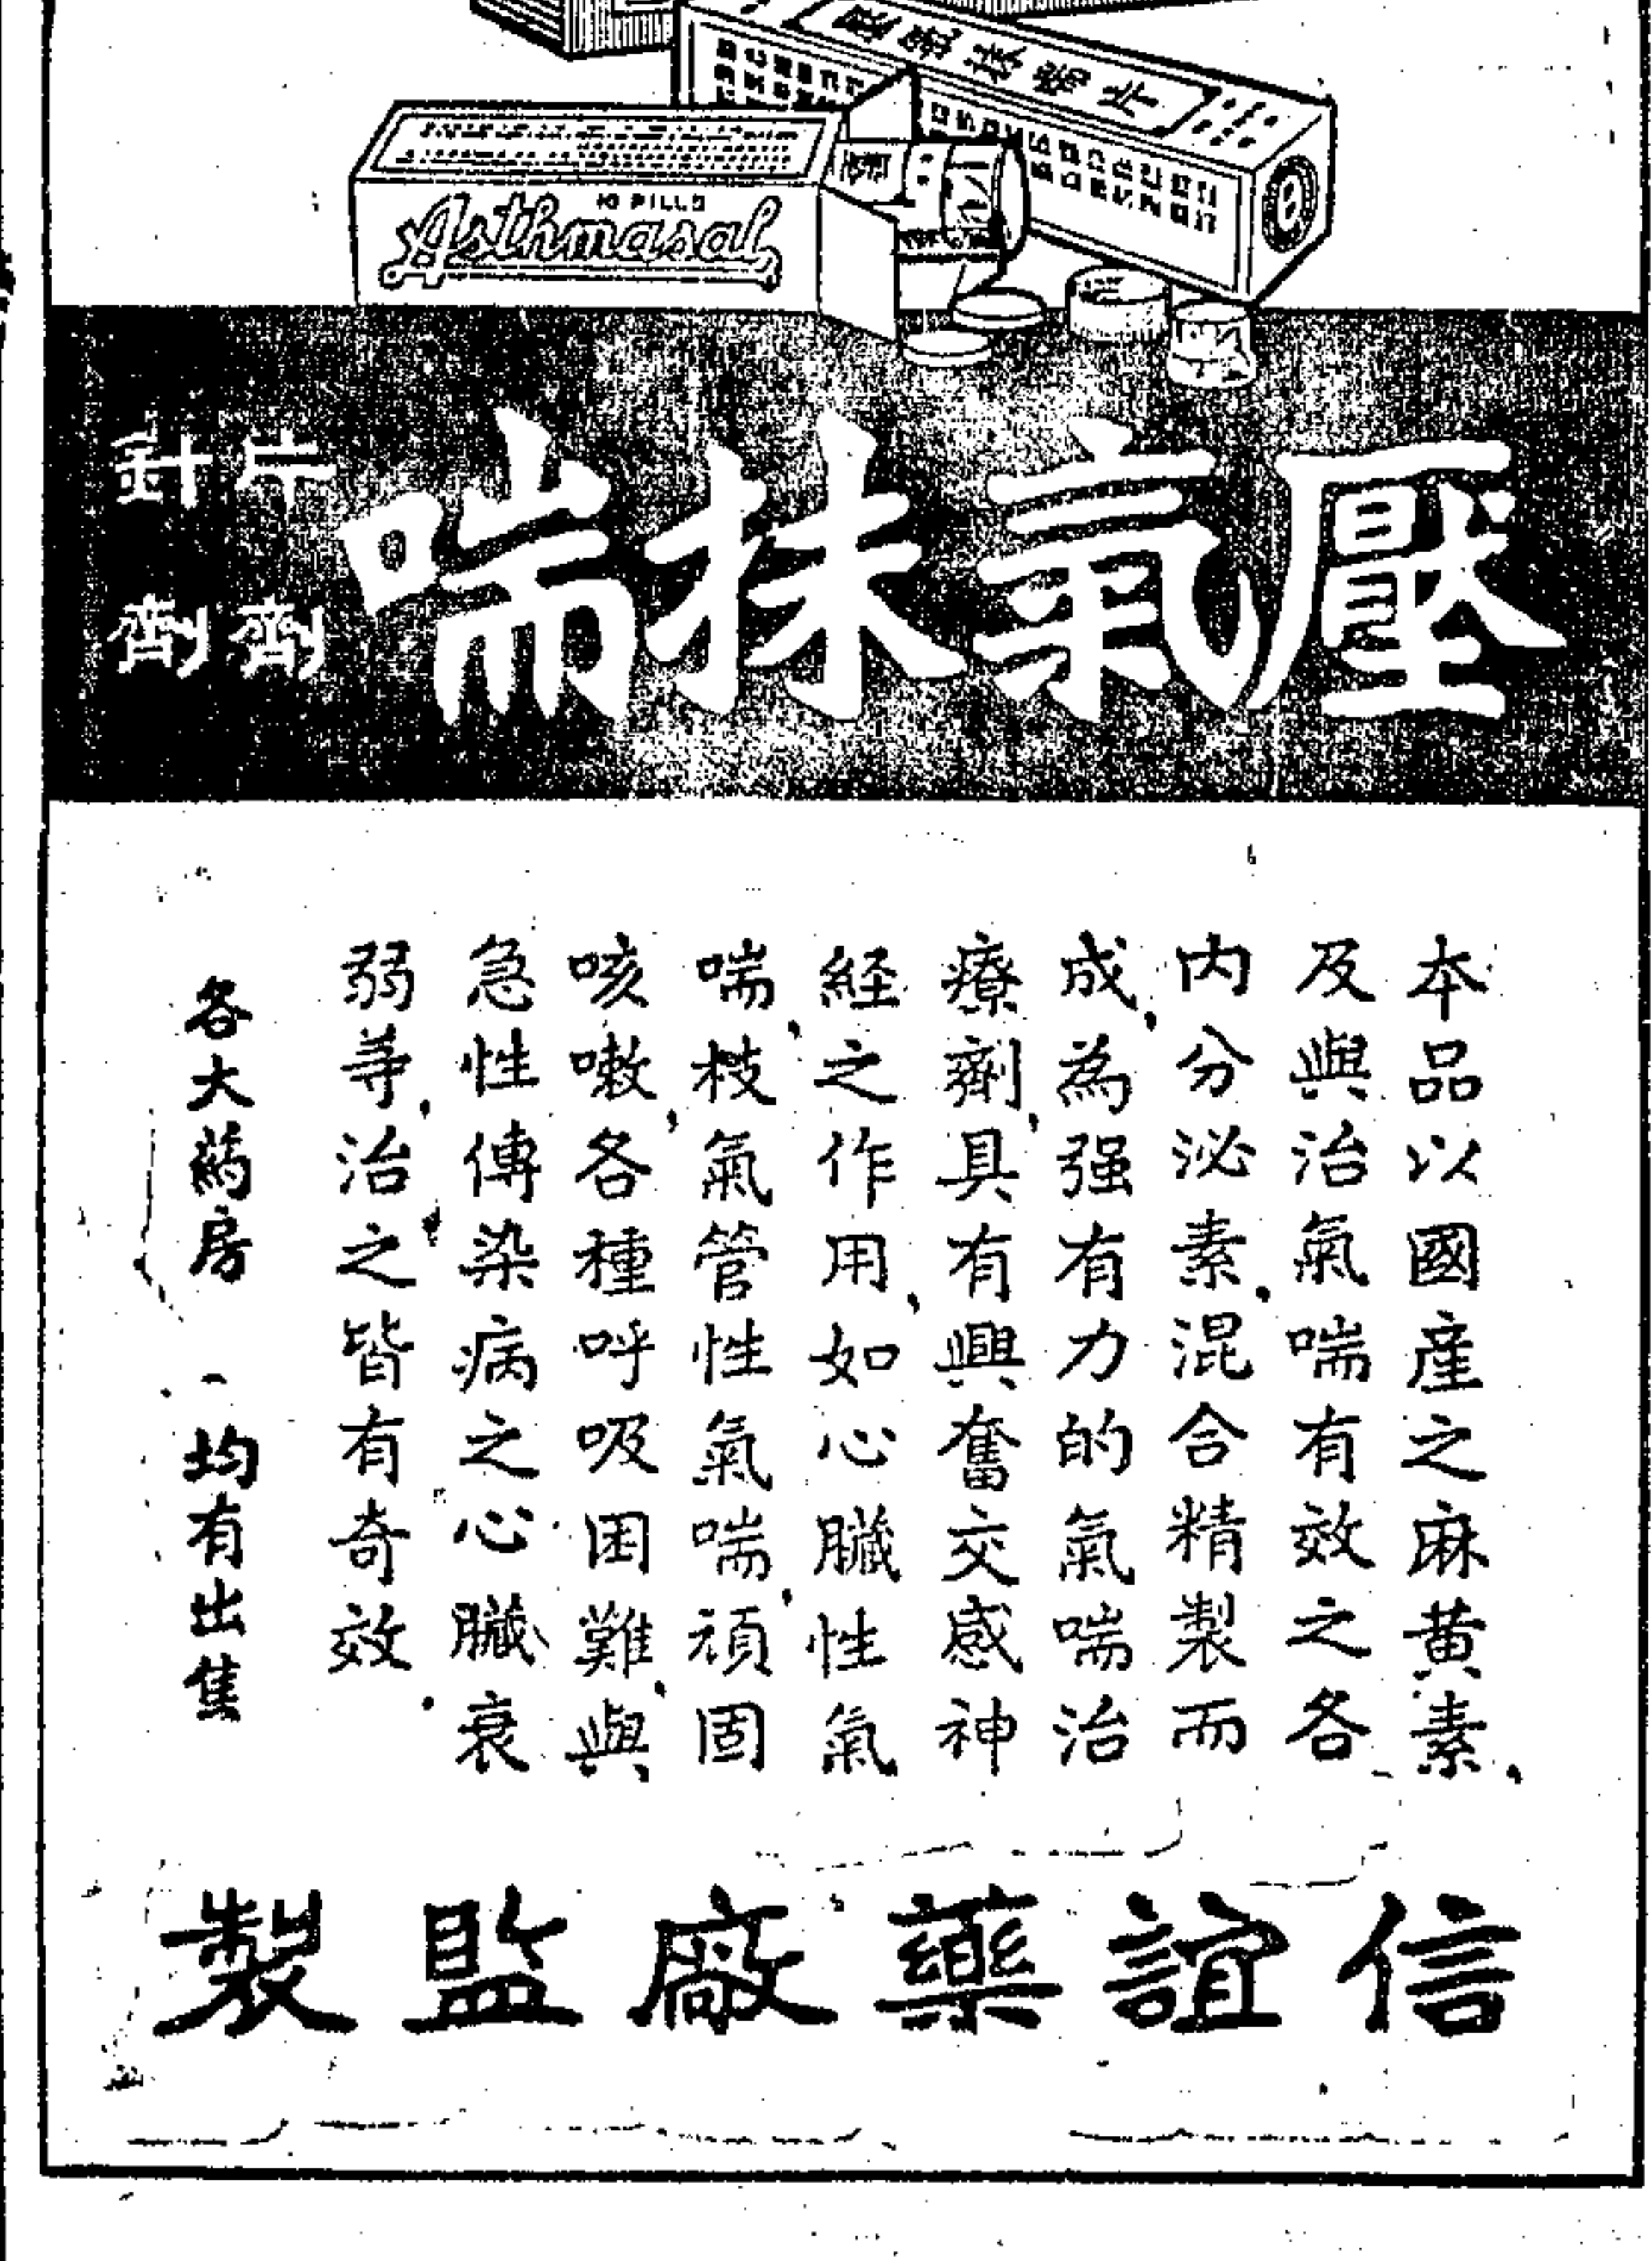 10 PILLS
Asthmasal
壓氣抹喘
片劑
針劑
本品以國產之麻黄素，
及與治氣喘有效之各
内分泌素，混合精製而
成，為强有力的氣喘治
療劑，具有興奮交感神
経之作用，如心臟性氣
喘，枝氣管性氣喘，頑固
咳嗽，各種呼吸困難，與
急性傳染病之心臟衰
弱等，治之皆有奇效．
各大葯房 均有出售
信誼藥廠監製